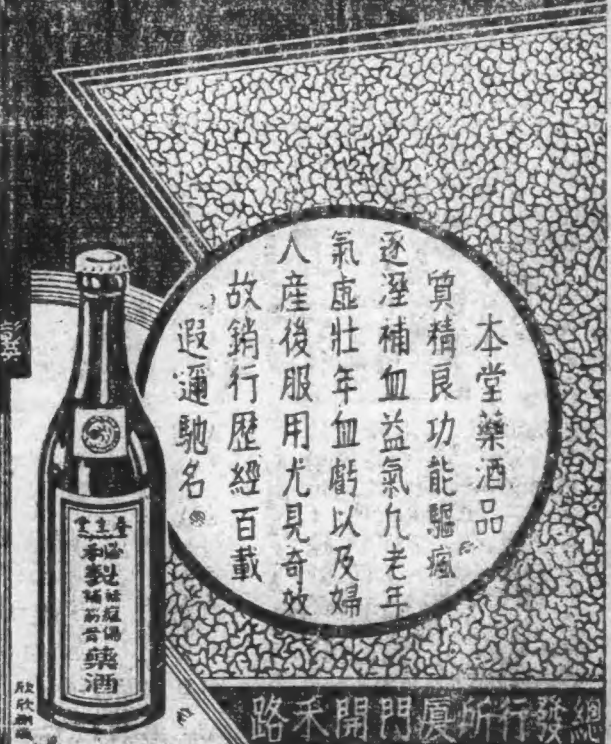 本堂藥酒品
質精良功能驅瘋
逐溼補血益氣凢老年
氣虛壯年血虧以及婦
人產後服用尤見奇效
故銷行歷經百載
遐邇馳名
春生堂
秘製
祛瘋傷
補筋骨
藥酒
總發行所厦門開禾路
欣欣